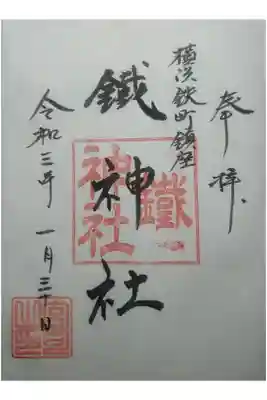 奉拝
横浜鉄町鎮座
鐵神社
鐵神社
令和三年 一月三十日